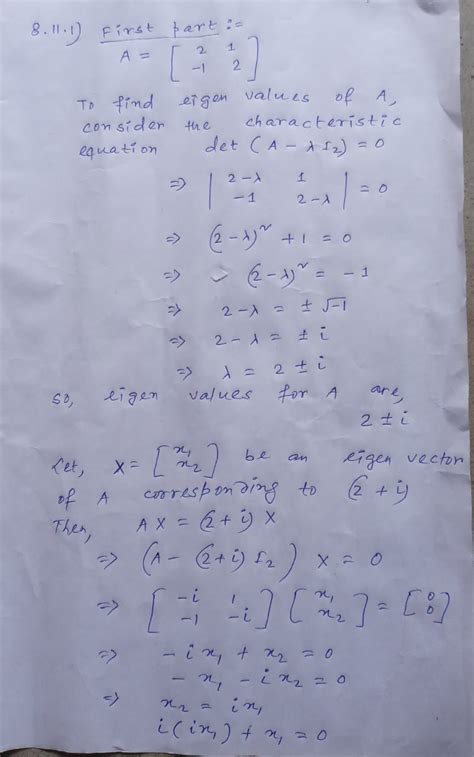 8.11.1) First part :-
A = [ 2 1
-1 2 ]
To find eigen values of A,
consider the characteristic
equation det (A - λ I₂) = 0
⇒ | 2-λ 1
-1 2-λ | = 0
⇒ (2-λ)² + 1 = 0
⇒ (2-λ)² = -1
⇒ 2-λ = ± √-1
⇒ 2-λ = ± i
⇒ λ = 2 ± i
so, eigen values for A are,
2 ± i
Let, X = [ x₁
x₂ ] be an eigen vector
of A corresponding to (2 + i)
Then, AX = (2+i) X
⇒ (A - (2+i) I₂) X = 0
⇒ [ -i 1
-1 -i ] [ x₁
x₂ ] = [ 0
0 ]
⇒ -ix₁ + x₂ = 0
-x₁ - ix₂ = 0
⇒ x₂ = ix₁
i(ix₁) + x₁ = 0